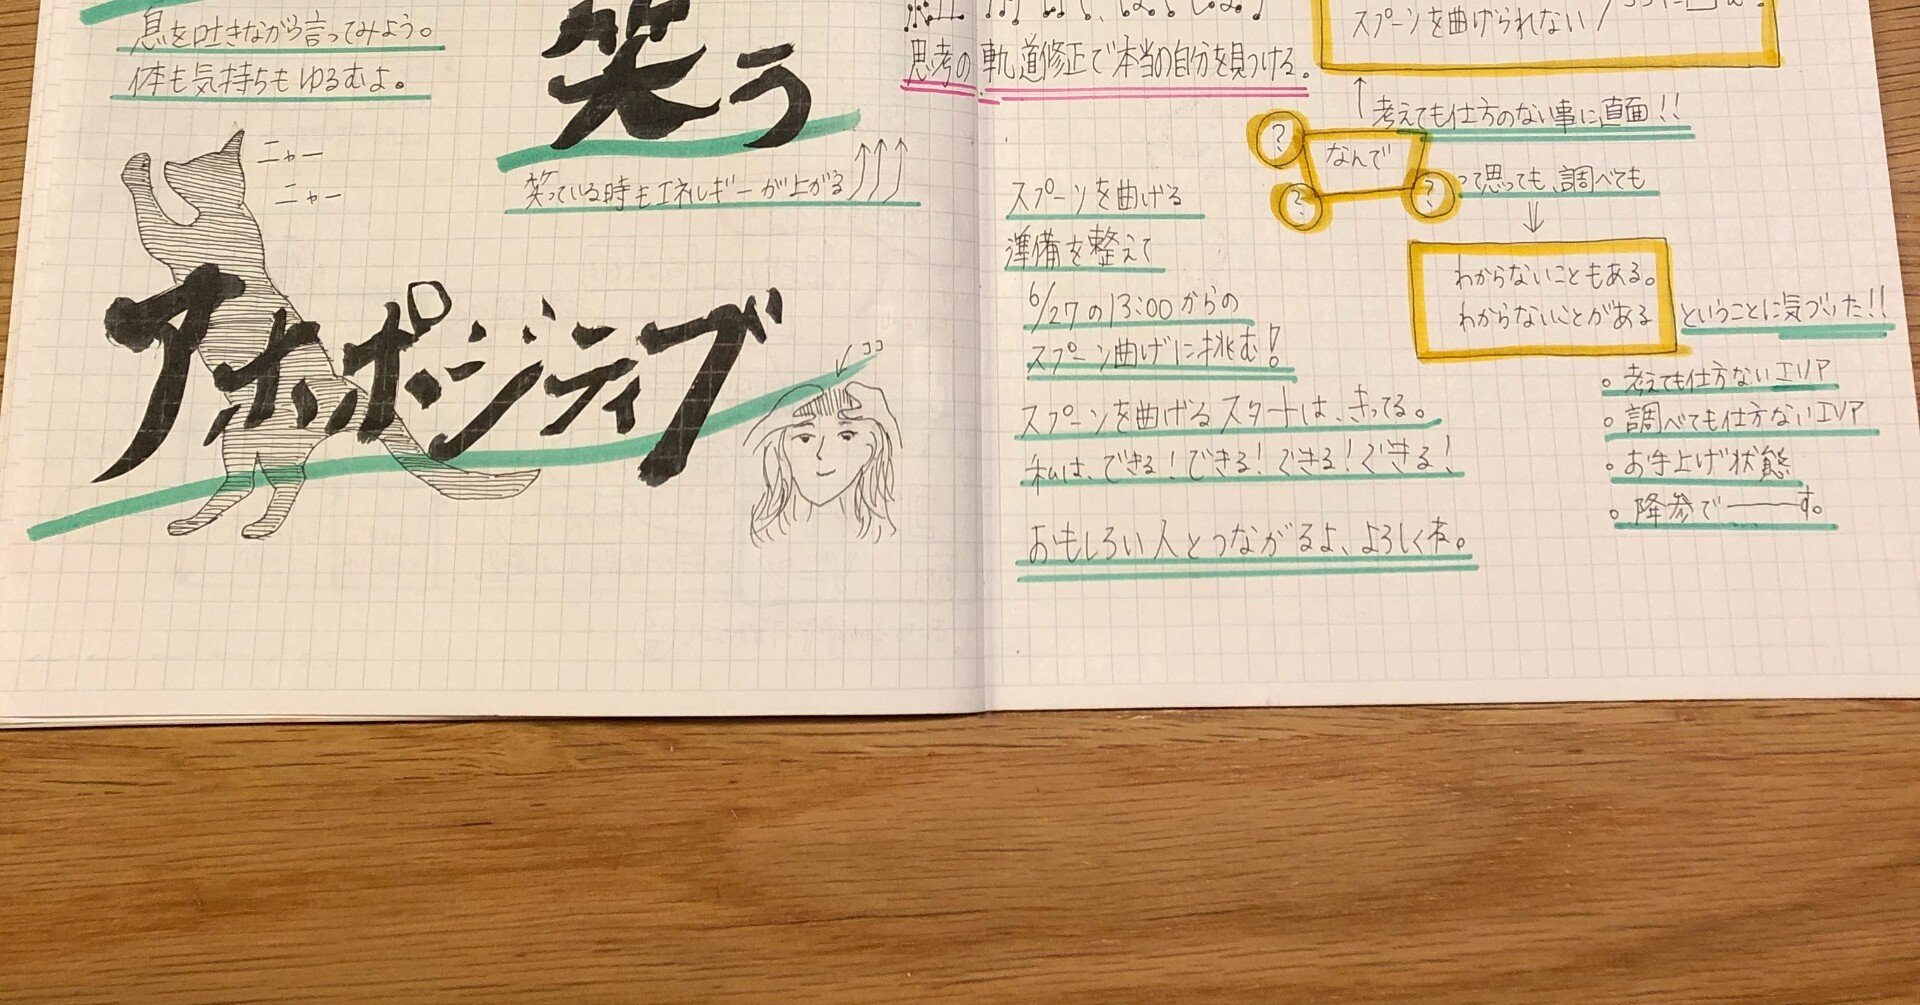 息を吐きながら言ってみよう。
体も気持ちもゆるむよ。
笑う
笑っている時もエネルギーが上がる
ニャー
ニャー
アホポジティブ
ココ
思考の軌道修正で本当の自分を見つける。
スプーンを曲げる
準備を整えて
6/27の13:00からの
スプーン曲げに挑む!
スプーンを曲げるスタートは、きってる。
私は、できる!できる!できる!できる!
おもしろい人とつながるよ、よろしくね。
スプーンを曲げられない
考えても仕方のない事に直面!!
?
なんで
?
?
って思っても、調べても
わからないこともある。
わからないことがある
ということに気づいた!!
。考えても仕方ないエリア
。調べても仕方ないエリア
。お手上げ状態
。降参で――す。